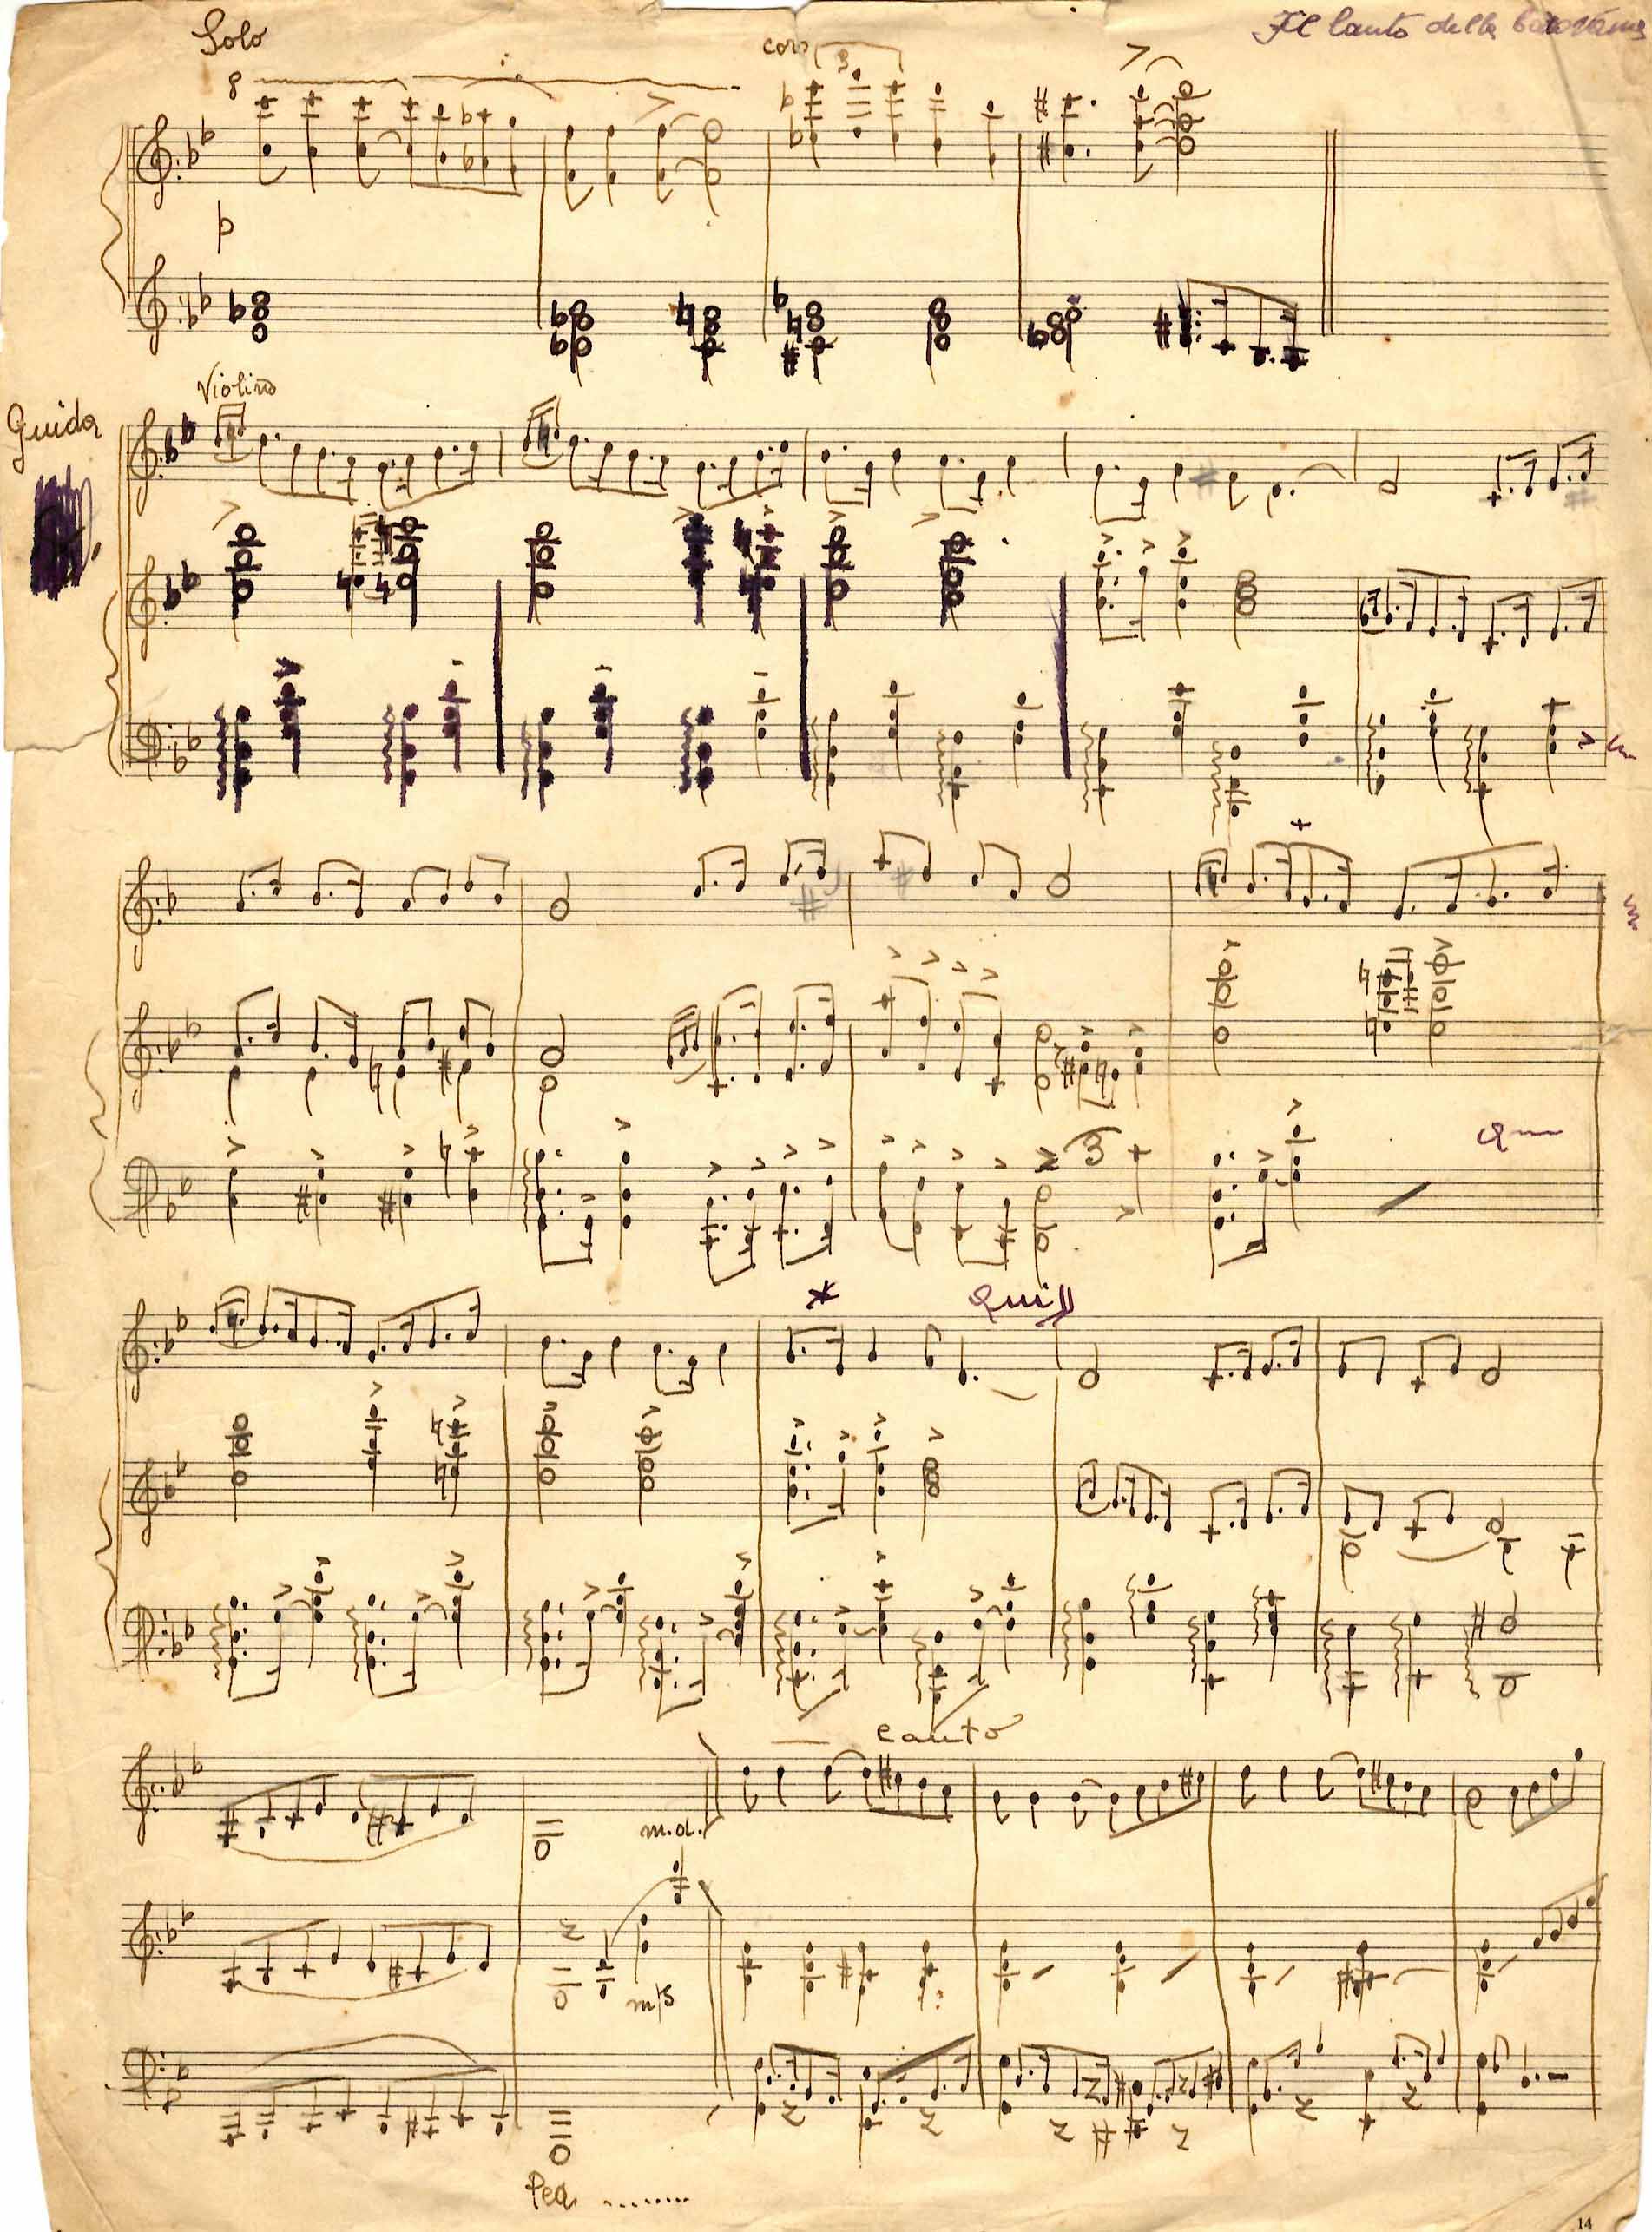 Il canto della
Solo
8
coro
3
p
Violino
Guida
3
Qui
canto
m.d.
m s
Ped. ........
14